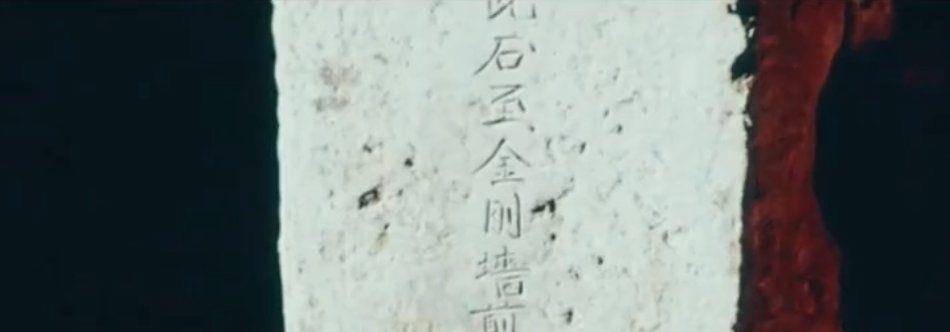 此石至金刚墙前